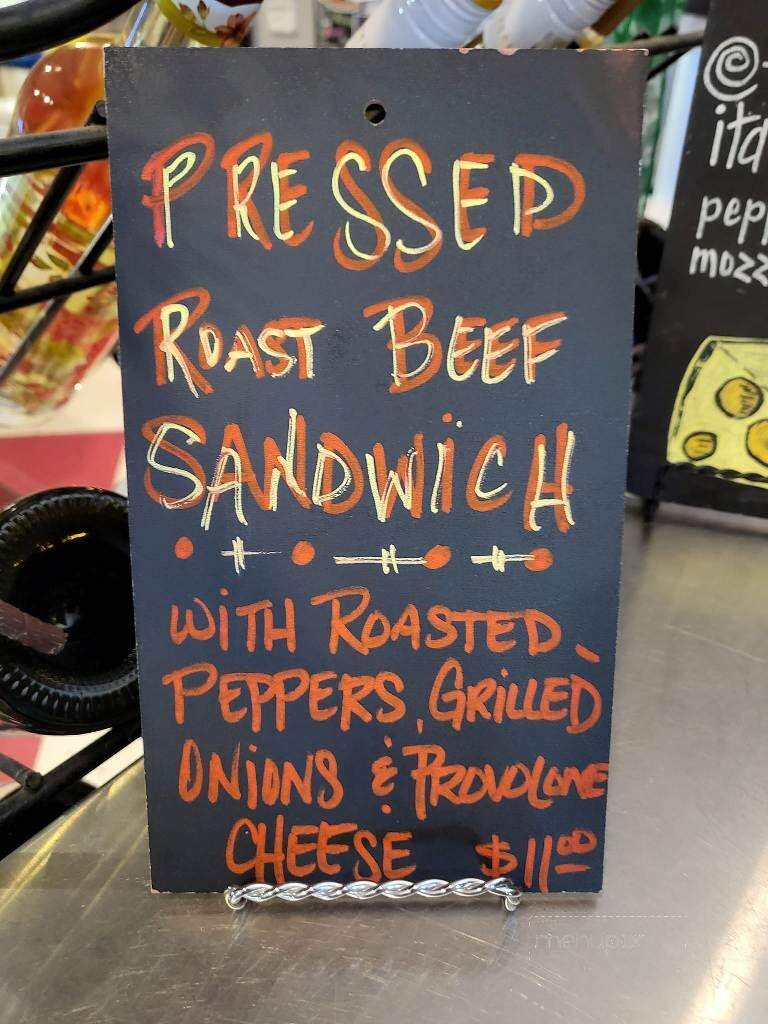 PRESSED
ROAST BEEF
SANDWICH
WITH ROASTED
PEPPERS, GRILLED
ONIONS & PROVOLONE
CHEESE $11.00
menupix